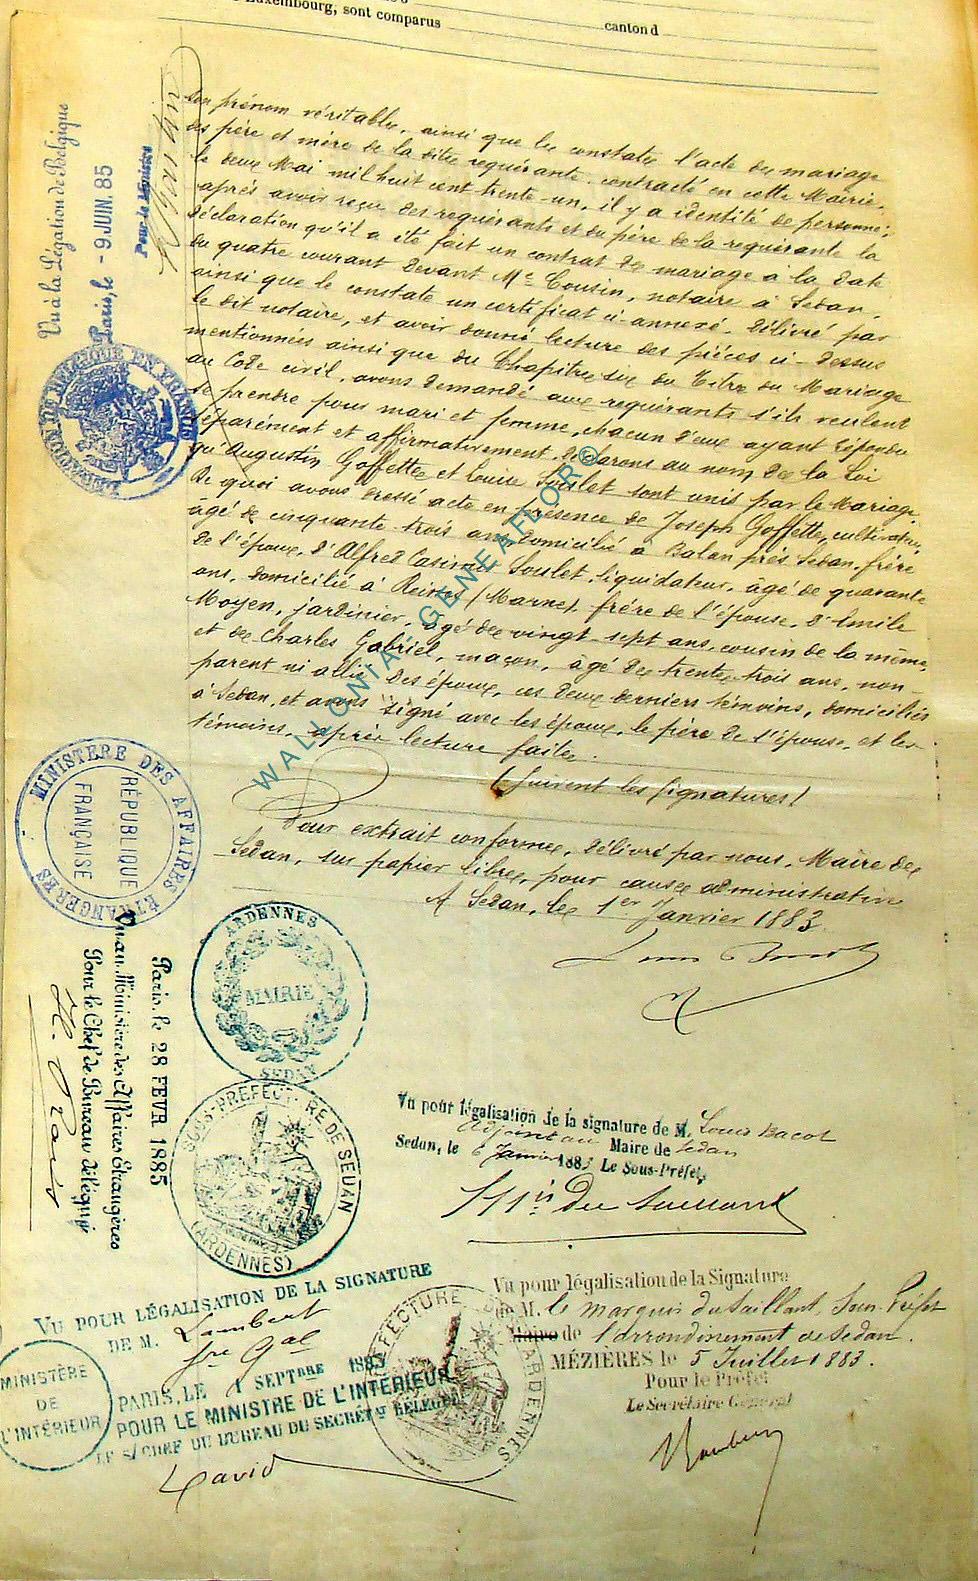 Luxembourg, sont comparus
canton d
son prénom véritable, ainsi que le constate l'acte de mariage
des père et mère de la dite requérante contracté en cette Mairie,
le deux Mai mil huit cent trente-un, il y a identité de personne;
après avoir reçu des requérants et du père de la requérante la
déclaration qu'il a été fait un contrat de mariage à la date
du quatre courant devant Me Cousin, notaire à Sedan,
ainsi que le constate un certificat ci-annexé délivré par
le dit notaire, et avoir donné lecture des pièces ci-dessus
mentionnées ainsi que du Chapitre six du Titre du Mariage
au Code civil, avons demandé aux requérants s'ils veulent
se prendre pour mari et femme, chacun d'eux ayant répondu
séparément et affirmativement, déclarons au nom de la Loi
qu'Augustin Goffette et Louise Soulet sont unis par le Mariage.
De quoi avons dressé acte en présence de Joseph Goffette, cultivateur,
âgé de cinquante-trois ans, domicilié à Balan près Sedan, frère
de l'époux, d'Alfred Casimir Soulet, liquidateur, âgé de quarante
ans, domicilié à Reims (Marne), frère de l'épouse, d'Emile
Moyen, jardinier, âgé de vingt-sept ans, cousin de la même,
et de Charles Gabriel, maçon, âgé de trente-trois ans, non-
parent ni allié des époux, ces deux derniers témoins, domiciliés
à Sedan, et avons signé avec les époux, le père de l'épouse, et les
témoins, après lecture faite.
(Suivent les signatures)
Pour extrait conforme, délivré par nous, Maire de
Sedan, sur papier libre, pour cause administrative
A Sedan, le 1er Janvier 1883
Louis Bacot
Vu à la Légation de Belgique
Paris, le - 9 JUIN. 85
Pour le Ministre
LÉGATION DE BELGIQUE EN FRANCE
WALLONIA GENEAFLOR©
MINISTERE DES AFFAIRES ÉTRANGÈRES
RÉPUBLIQUE
FRANÇAISE
Paris, le 28 FEVR 1885
Vu au Ministère des Affaires Etrangères
Pour le Chef de Bureau délégué
ARDENNES
MAIRIE
SEDAN
SOUS-PREFECTURE DE SEDAN
(ARDENNES)
Vu pour légalisation de la signature de M. Louis Bacot
Adjoint au Maire de Sedan
Sedan, le 6 Janvier 1883 Le Sous-Préfet,
Mis du Saillant
Vu pour légalisation de la Signature
de M. le marquis du Saillant, Sous-Préfet
Maire de l'arrondissement de Sedan.
MÉZIÈRES le 5 Juillet 1883.
Pour le Préfet
Le Secrétaire Général
Lambert
PRÉFECTURE
ARDENNES
VU POUR LÉGALISATION DE LA SIGNATURE
DE M. Lambert
Sre Gal
PARIS, LE 1 SEPTBRE 1883
POUR LE MINISTRE DE L'INTÉRIEUR
LE S/CHEF DU BUREAU DU SECRÉTt DÉLÉGUÉ
David
MINISTÈRE
DE
L'INTÉRIEUR